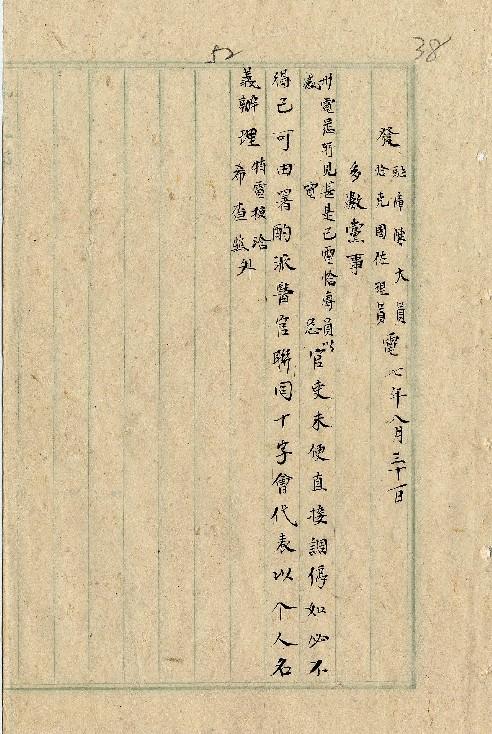 38
52
發 駐庫陳大員
恰克圖佐理員 電 七年八月三十一日
多數黨事
卅電悉所見甚是已電恰專員以
恐官吏未便直接調停如必不
得已可由署酌派醫官聯同十字會代表以个人名
義辦理 特電接洽
希查照外